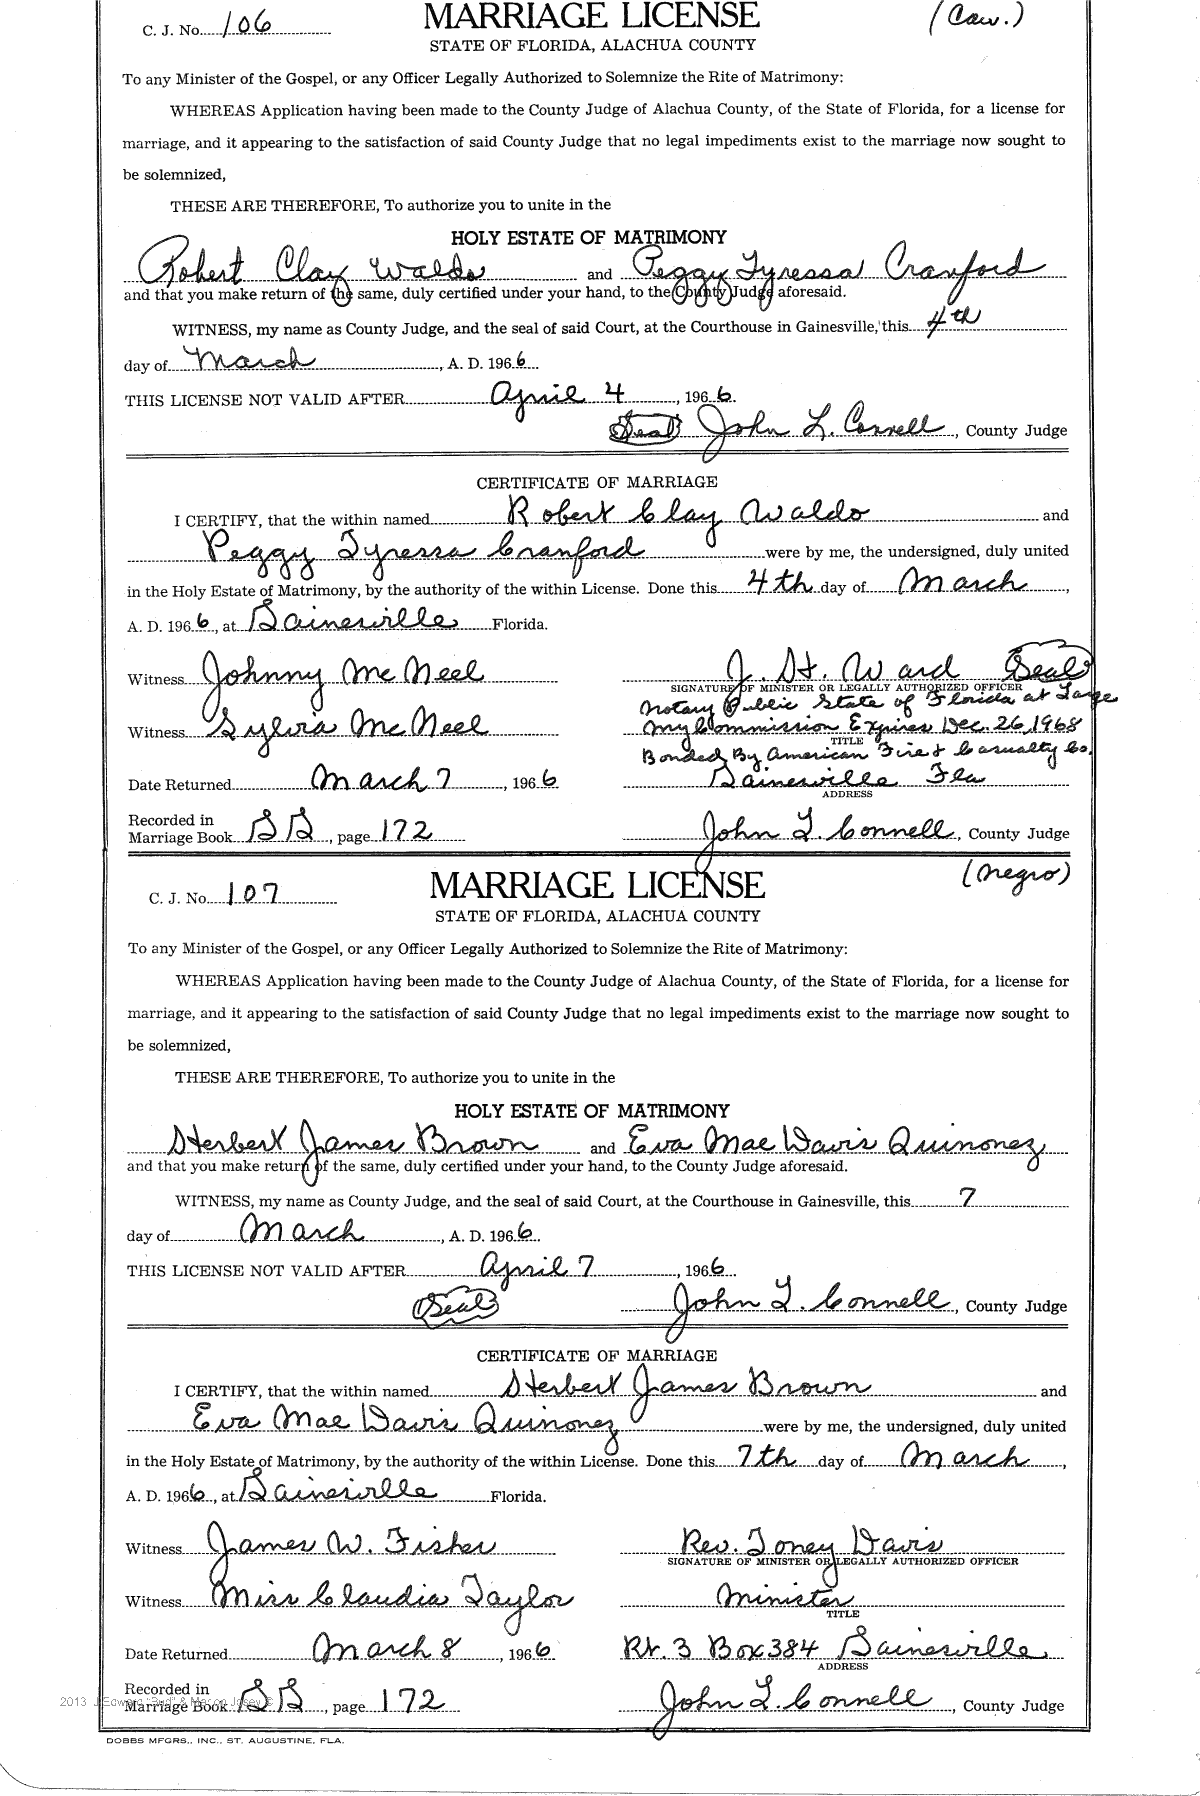 C. J. No. 106 MARRIAGE LICENSE (Cau.)
STATE OF FLORIDA, ALACHUA COUNTY
To any Minister of the Gospel, or any Officer Legally Authorized to Solemnize the Rite of Matrimony:
WHEREAS Application having been made to the County Judge of Alachua County, of the State of Florida, for a license for
marriage, and it appearing to the satisfaction of said County Judge that no legal impediments exist to the marriage now sought to
be solemnized,
THESE ARE THEREFORE, To authorize you to unite in the
HOLY ESTATE OF MATRIMONY
Robert Clay Waldo and Peggy Tyressa Cranford
and that you make return of the same, duly certified under your hand, to the County Judge aforesaid.
WITNESS, my name as County Judge, and the seal of said Court, at the Courthouse in Gainesville, this 4th
day of March, A. D. 1966
THIS LICENSE NOT VALID AFTER April 4, 1966.
Seal John L. Connell, County Judge
CERTIFICATE OF MARRIAGE
I CERTIFY, that the within named Robert Clay Waldo and
Peggy Tyressa Cranford were by me, the undersigned, duly united
in the Holy Estate of Matrimony, by the authority of the within License. Done this 4th day of March,
A. D. 1966, at Gainesville Florida.
Witness Johnny McNeel J. H. Ward Seal
SIGNATURE OF MINISTER OR LEGALLY AUTHORIZED OFFICER
Notary Public State of Florida at Large
Witness Sylvia McNeel My Commission Expires Dec. 26, 1968
TITLE
Bonded By American Fire & Casualty Co.
Date Returned March 7, 1966 Gainesville Fla
ADDRESS
Recorded in
Marriage Book SS, page 172 John L. Connell, County Judge
C. J. No. 107 MARRIAGE LICENSE (Negro)
STATE OF FLORIDA, ALACHUA COUNTY
To any Minister of the Gospel, or any Officer Legally Authorized to Solemnize the Rite of Matrimony:
WHEREAS Application having been made to the County Judge of Alachua County, of the State of Florida, for a license for
marriage, and it appearing to the satisfaction of said County Judge that no legal impediments exist to the marriage now sought to
be solemnized,
THESE ARE THEREFORE, To authorize you to unite in the
HOLY ESTATE OF MATRIMONY
Herbert James Brown and Eva Mae Davis Quinonez
and that you make return of the same, duly certified under your hand, to the County Judge aforesaid.
WITNESS, my name as County Judge, and the seal of said Court, at the Courthouse in Gainesville, this 7
day of March, A. D. 1966.
THIS LICENSE NOT VALID AFTER April 7, 1966
Seal John L. Connell, County Judge
CERTIFICATE OF MARRIAGE
I CERTIFY, that the within named Herbert James Brown and
Eva Mae Davis Quinonez were by me, the undersigned, duly united
in the Holy Estate of Matrimony, by the authority of the within License. Done this 7th day of March,
A. D. 1966, at Gainesville Florida.
Witness James W. Fisher Rev. Toney Davis
SIGNATURE OF MINISTER OR LEGALLY AUTHORIZED OFFICER
Witness Miss Claudia Taylor Minister
TITLE
Date Returned March 8, 1966 Rt. 3 Box 384 Gainesville
ADDRESS
Recorded in
Marriage Book SS, page 172 John L. Connell, County Judge
2013 J Edward "Bud" & Marion Josey ©
DOBBS MFGRS., INC., ST. AUGUSTINE, FLA.